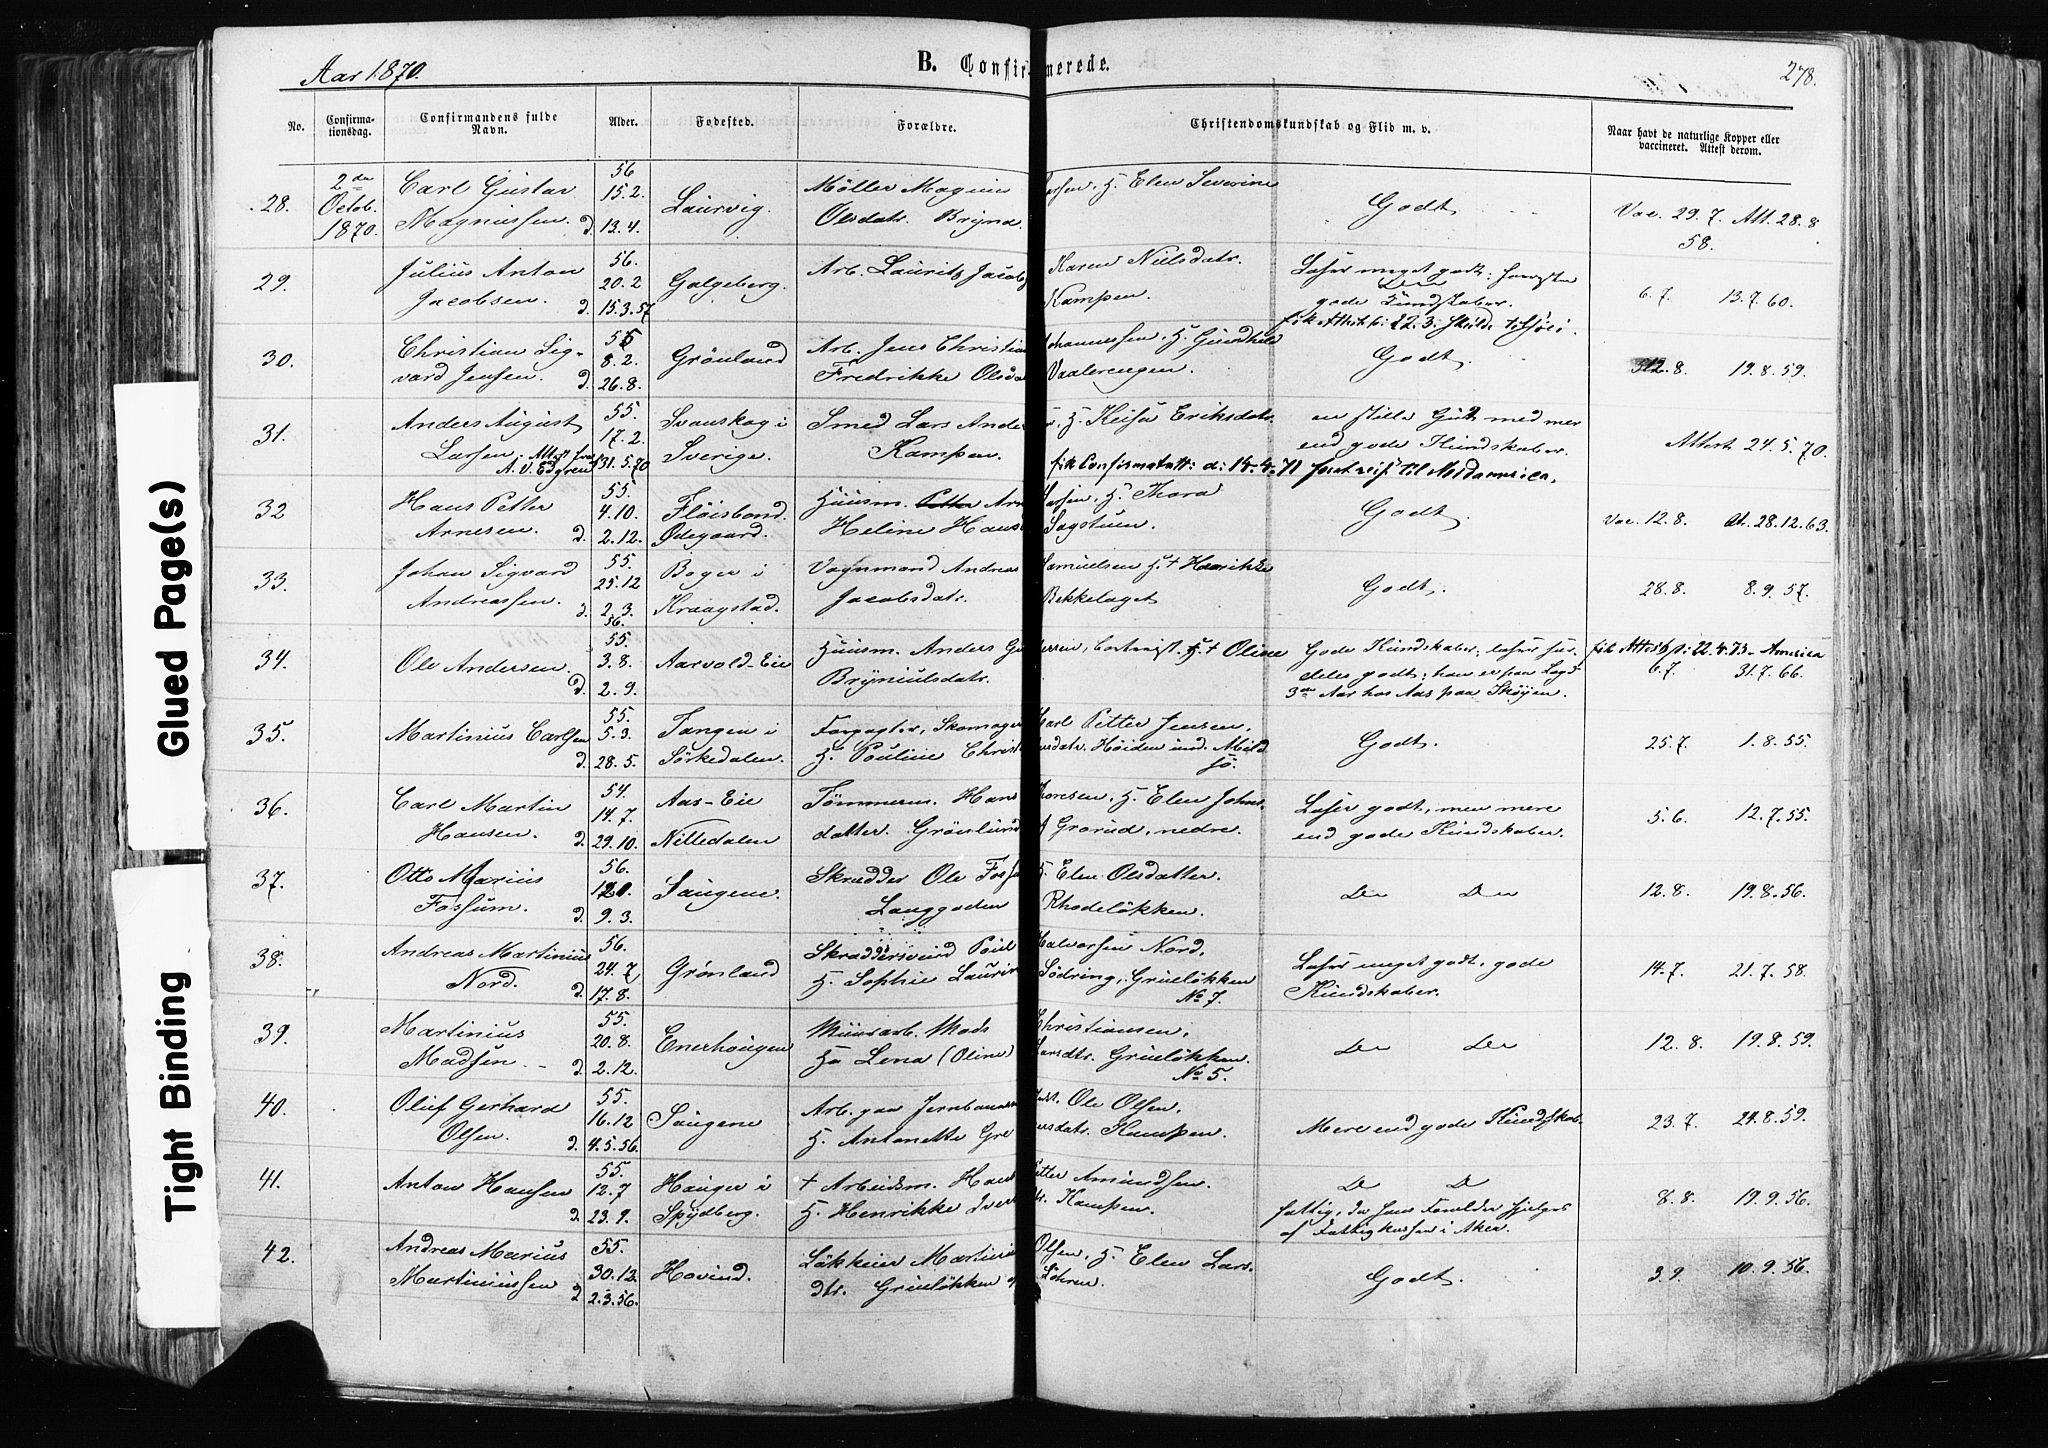 Aar 1870.
B. Confirmerede.
278.
No.
Confirma-
tionsdag.
Confirmandens fulde
Navn.
Alder.
Fødested.
Forældre.
Christendomskundskab og Flid m. v.
Naar havt de naturlige Kopper eller
vaccineret. Attest derom.
28.
2den
Octob.
1870.
Carl Gustav
Magnussen.
56
15.2.
d. 13.4.
Laurvig.
Møller Magnus Larsen, H. Elen Severine
Olsdatr. Bryna.
Godt
Vac. 29.7. Att. 28.8
58.
29.
Julius Anton
Jacobsen.
56.
20.2
d. 15.3.57
Galgeberg.
Arb. Lauritz Jacobs Karen Nielsdatr.
Kampen.
Læser meget godt;
gode Kundskaber.
6.7. 13.7.60.
30.
Christian Sig-
vard Jensen.
55
8.2.
d. 26.8.
Grønland
Arb. Jens Christian Johannessen, H. Gundhild
Fredrikke Olsda Vaalerengen.
Godt.
12.8. 19.8.59.
31.
Anders August
Larsen. Attest fra
A. V. Edgren
55.
17.2.
31.5.70
Svanskog i
Sverige.
Smed Lars Ander H. Keisa Eriksdatr.
Kampen.
en stille Gut med mer
end gode Kundskaber.
fik Confirmatatt: d: 14-4-71 for at reise til Nordamerica.
Attest 24.5.70.
32
Hans Petter
Arnesen.
55.
4.10.
d. 2.12.
Fløisbond.
Ødegaard.
Huusm. Petter Arne Larsen, H. Thora
Heline Hans Sagstuen.
Godt.
Vac. 12.8. At. 28.12.63.
33.
Johan Sigvard
Andreassen.
55.
25.12
d. 2.3.
56.
Boger i
Kraagstad.
Vognmand Andreas Samuelsen H. + Henrikke
Jacobsdatr. Bekkelaget
Godt.
28.8. 8.9.57.
34.
Ole Andersen.
55.
3.8.
d. 2.9.
Aarvold-Eie
Huusm. Anders Gu H. + Oline
Bryniulsdatr.
Gode Kundskaber; læser sær-
deles godt; han er paa Lægd
3die Aar hos Aas paa Skøyen.
fik Attest d: 22.4.73 - America
6.7. 31.7.66.
35.
Martinius Carlsen
55.
5.3.
d. 28.5.
Tangen i
Sørkedalen.
Forpagter, Skomager Karl Petter Jensen,
H. Pouline Christ nsdatr. Høiden ind. Mild
sø.
Godt.
25.7. 1.8.55.
36.
Carl Martin
Hansen.
54.
14.7.
d. 29.10.
Aas-Eie
Nittedalen
Tømmerm. Hans Thoresen, H. Elen Johns-
datter. Grønlund Grorud, nedre.
Læser godt, men mere
end gode Kundskaber.
5.6. 12.7.55.
37.
Otto Marius
Fossum.
56.
d. 9.3.
Saugene.
Skrædder Ole Fossu H. Elen Olsdatter.
Langgaden Rhodeløkken.
Do Do
12.8. 19.8.56.
38.
Andreas Martinius
Nord.
56.
24.7
d. 17.8.
Grønland
Skræddersvend Poul Halvorsen Nord,
H. Sophie Laurin Södring, Grueløkken
No 7.
Læser meget godt, gode
Kundskaber.
14.7. 21.7.58.
39.
Martinius
Madsen
55.
20.8.
d. 2.12.
Enerhougen
Muurarb. Mads Christiansen,
Ha Lena (Oline) Larsdtr. Grueløkken.
No 5.
Do Do
12.8. 19.8.59.
40.
Oluf Gerhard
Olsen.
55.
16.12
d. 4.5.56.
Saugene
Arb. paa Jernbanen Ole Olsen,
H. Antonette Gre rsdatr. Kampen.
Mere end gode Kundskab.
23.7. 24.8.59.
41.
Anton Hansen
55.
12.7
d. 23.9.
Hauger i
Spydberg.
+ Arbeidsm. Hans Petter Amundsen.
H. Henrikke Iver Kampen.
Do Do
fattig, da hans Forældre hjelpes
af Fattigkassen i Aker.
8.8. 19.9.56.
42.
Andreas Marius
Martiniussen
55.
30.12
d 2.3.56.
Hovind.
Løkkeier Martinius Olsen, H. Elen Lars-
dtr. Grueløkken Løhren.
Godt.
3.9. 10.9.56.
Glued Page(s)
Tight Binding